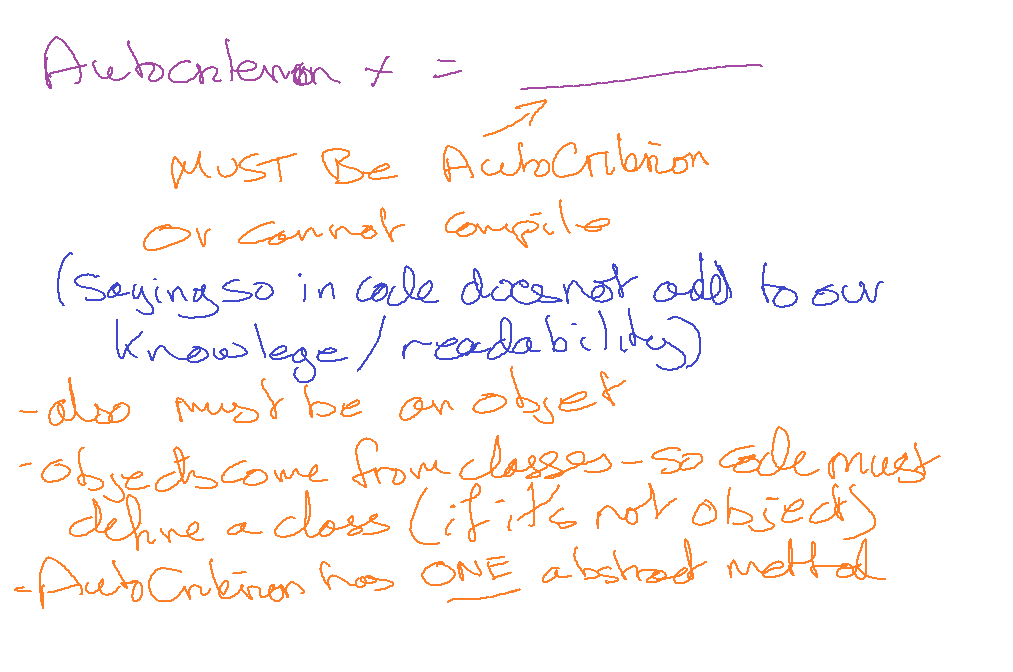 AutoCriterion x = ______
MUST BE AutoCriterion
or cannot compile
(Saying so in code does not add to our
knowlege/readability)
- also must be an object
- objects come from classes - so code must
define a class (if it's not object)
- AutoCriterion has ONE abstract method